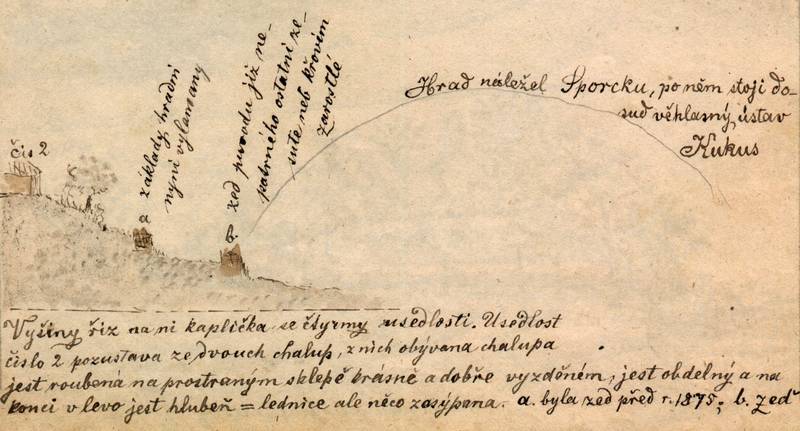 čis 2
a základy hradní
nyní vylamany
b. zeď puvodu již ne-
patrného ostatni ze-
sute neb křovim
zarostlé
Hrad náležel Sporcku, po něm stoji do-
sud věhlasný ústav
Kukus
Vyšiny říz na ni kaplička se čtyrmy usedlosti. Usedlost
číslo 2 pozustava ze dvouch chalup, z nich obývana chalupa
jest roubená na prostraným sklepě krásně a dobře vyzděném, jest obdélný a na
konci v levo jest hlubeň = lednice ale něco zasýpana. a. byla zeď před r. 1875; b. zeď